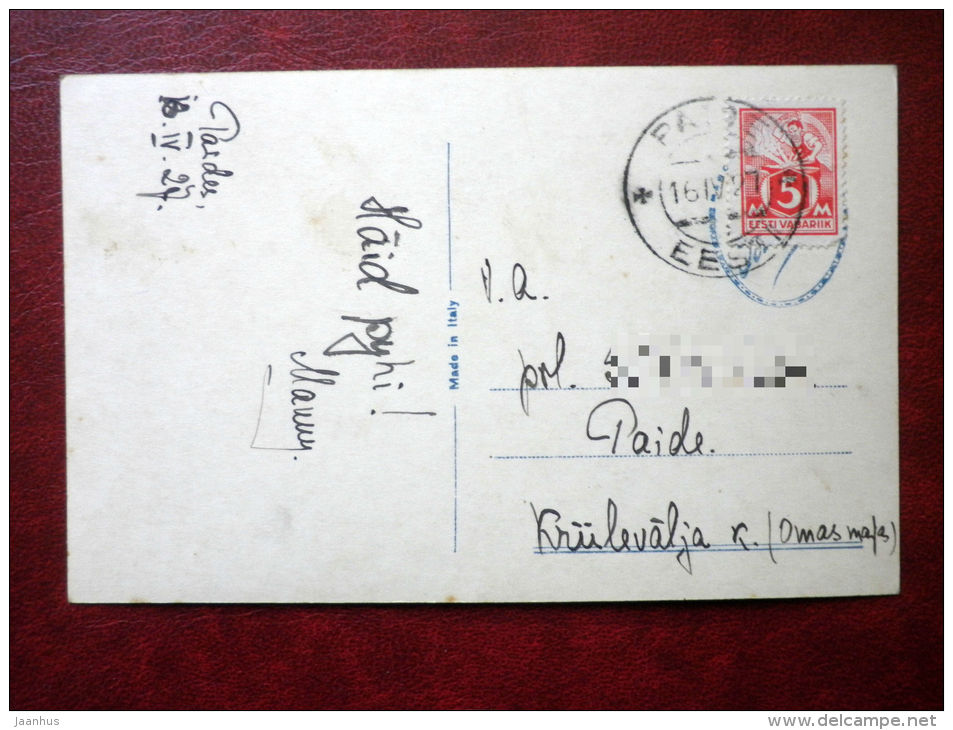 Paides,
16.IV.27.
Häid pyhi!
Manny.
Made in Italy
PAIDE
16 IV 27
EESTI
5
M M
EESTI VABARIIK
V. A.
prl.
Paide.
Kriilevälja k. (Omas majas)
jaanhus
www.delcampe.net